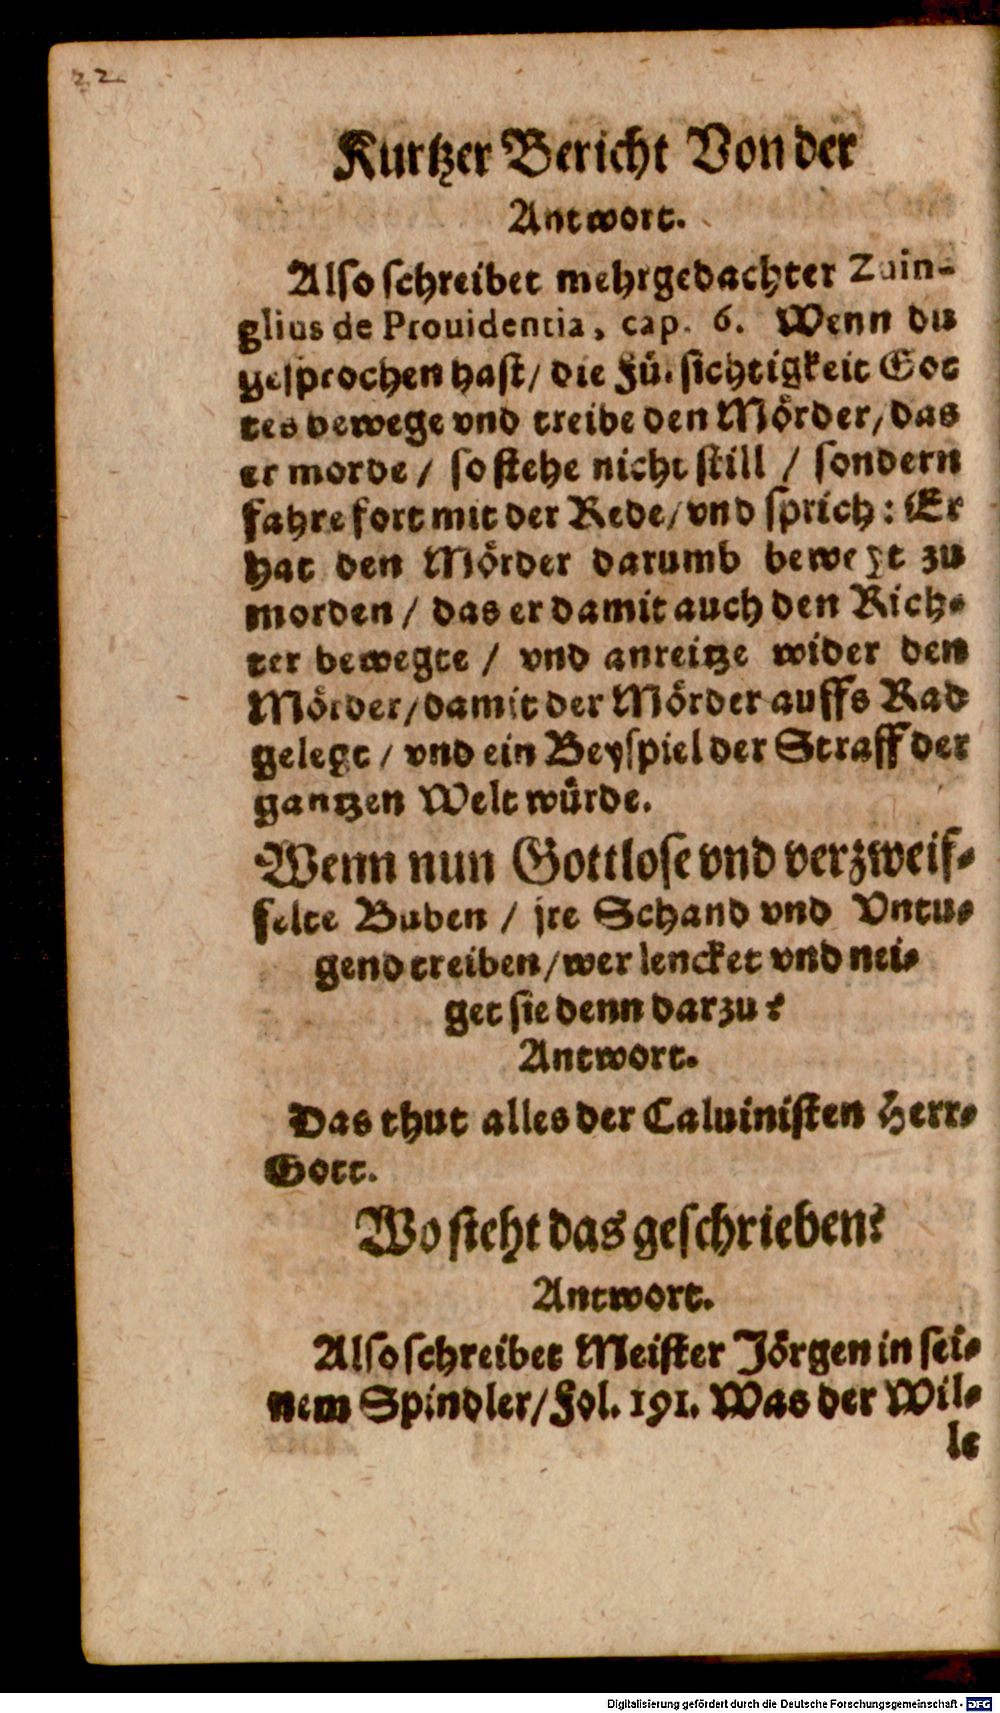 22
Kurtzer Bericht Von der
Antwort.
Also schreibet mehrgedachter Zuin-
glius de Prouidentia, cap. 6. Wenn du
gesprochen hast/ die Fürsichtigkeit Got
tes bewege vnd treibe den Mörder/ das
er morde / so stehe nicht still / sondern
fahre fort mit der Rede/ vnd sprich: Er
hat den Mörder darumb bewegt zu
morden / das er damit auch den Rich-
ter bewegte / vnd anreitze wider den
Mörder/ damit der Mörder auffs Rad
gelegt / vnd ein Beyspiel der Straff der
gantzen Welt würde.
Wenn nun Gottlose vnd verzweif-
felte Buben / jre Schand vnd Vntu-
gend treiben/ wer lencket vnd nei-
get sie denn darzu?
Antwort.
Das thut alles der Caluinisten Herr-
Gott.
Wo steht das geschrieben?
Antwort.
Also schreibet Meister Jörgen in sei-
nem Spindler/ Fol. 191. Was der Wil-
le
Digitalisierung gefördert durch die Deutsche Forschungsgemeinschaft - DFG